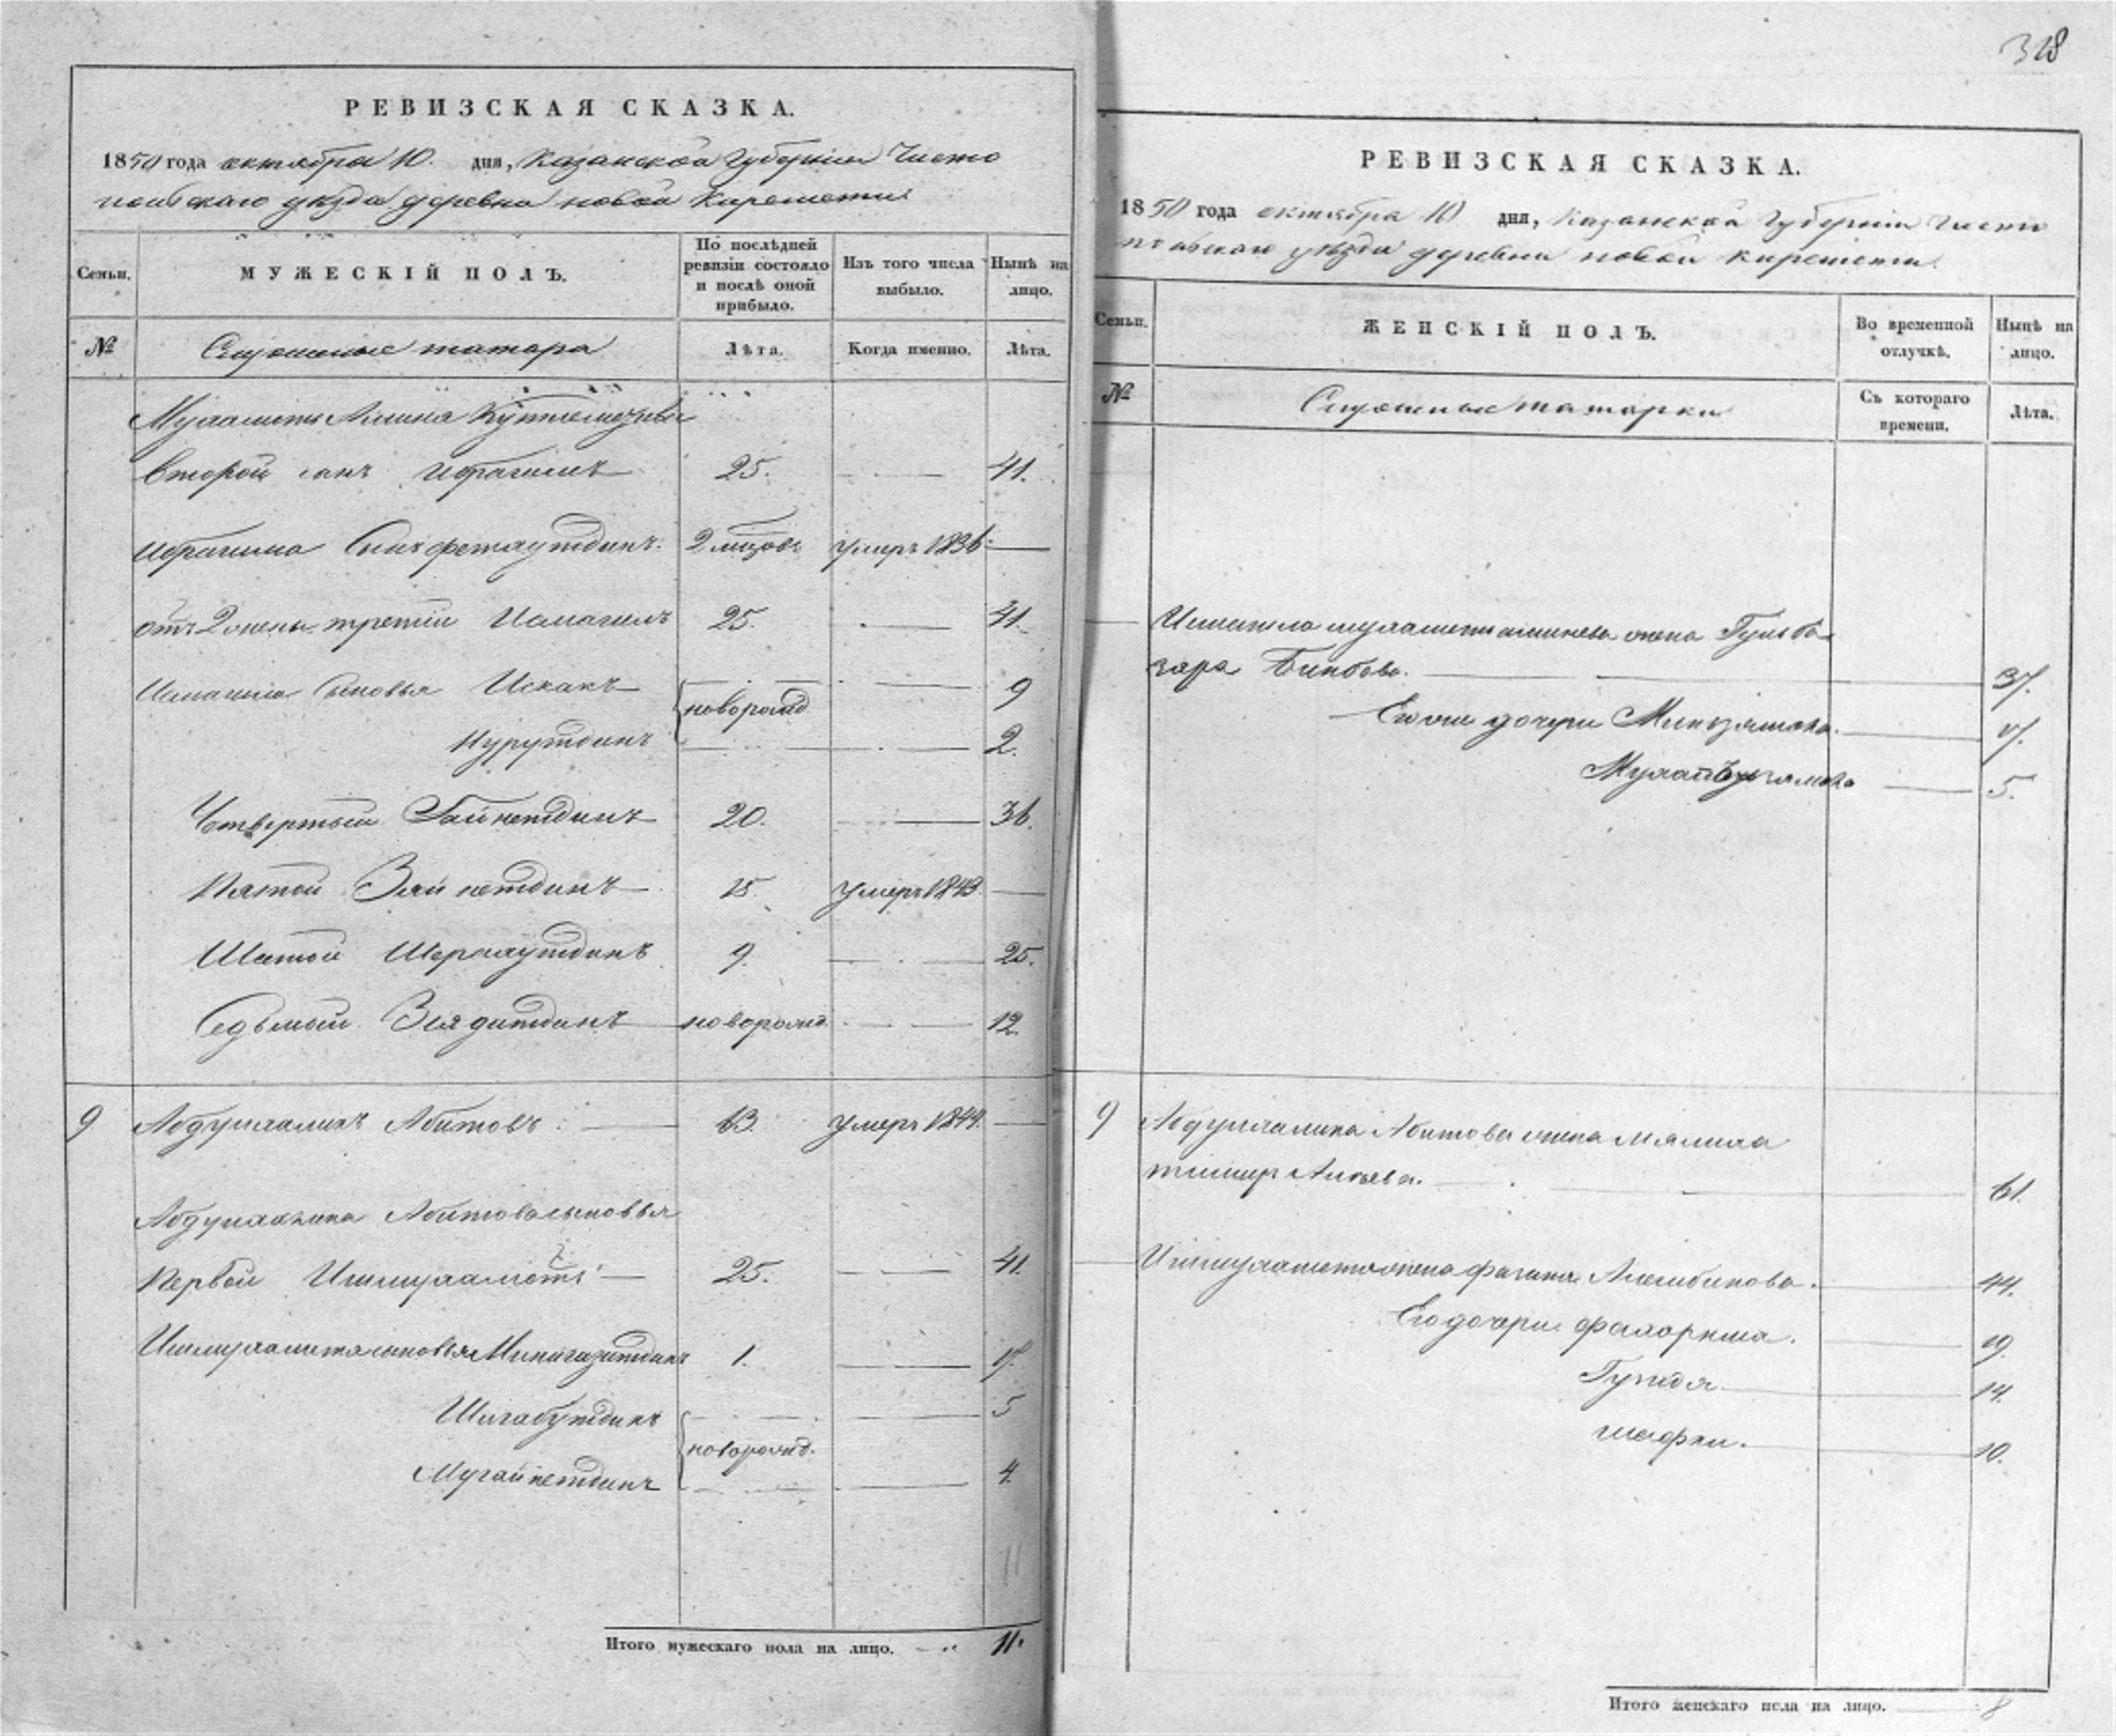 318
РЕВИЗСКАЯ СКАЗКА.
1850 года октября 10. дня, Казанской Губернии Чисто
польскаго уезда деревни новой Киремети
Семьи.
МУЖЕСКІЙ ПОЛЪ.
По послѣдней ревизіи состояло и послѣ оной прибыло.
Изъ того числа выбыло.
Нынѣ на лицо.
№
Служилые татара
Лѣта.
Когда именно.
Лѣта.
Муламетъ Амина Кутлеметева
второй сынъ Ибрагимъ 25. 41.
Ибрагима Сынъ фетяутдинъ. 2 умеръ 1836.
отъ 2 жены третій Исмагилъ 25. 41.
Исмагила Сыновья Исхакъ новорожд 9
Нурутдинъ 2.
Четвертый Гайнетдинъ 20. 36.
Пятой Зайнетдинъ 15. умеръ 1843.
Шестой 9. 25.
Седьмой новорожд. 12.
9 Абдулхаликъ Абитовъ. 63. умеръ 1844.
Абдулхалика Абитова сыновья
Первой Ишмухаметъ 25. 41.
Ишмухаметя сыновья Минигазитдинъ 1. 17.
Шигабутдинъ новорожд. 5
4.
Итого мужескаго пола на лицо. 11.
РЕВИЗСКАЯ СКАЗКА.
1850 года октября 10 дня, Казанской Губерніи Чисто
польскаго уезда деревни новой Киремети.
Семьи.
ЖЕНСКІЙ ПОЛЪ.
Во временной отлучкѣ.
Нынѣ на лицо.
№
Служилые татарки
Съ котораго времени.
Лѣта.
Исмагила жена Гульба
зара Бикбова. 37.
Его же дочери 17.
5.
9 Абдулхалика Абитова жена
61.
Ишмухаметя жена 44.
Его дочери 19.
14.
10.
Итого женскаго пола на лицо. 8